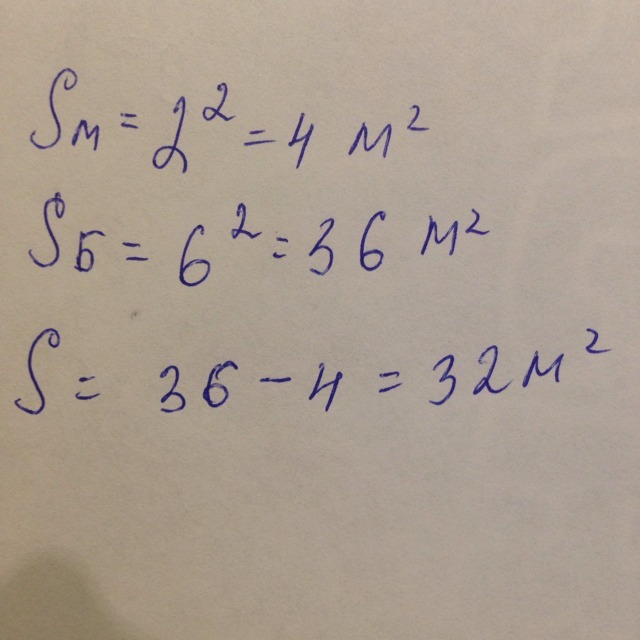 Sм = 2² = 4 м²
SБ = 6² = 36 м²
S = 36 - 4 = 32 м²